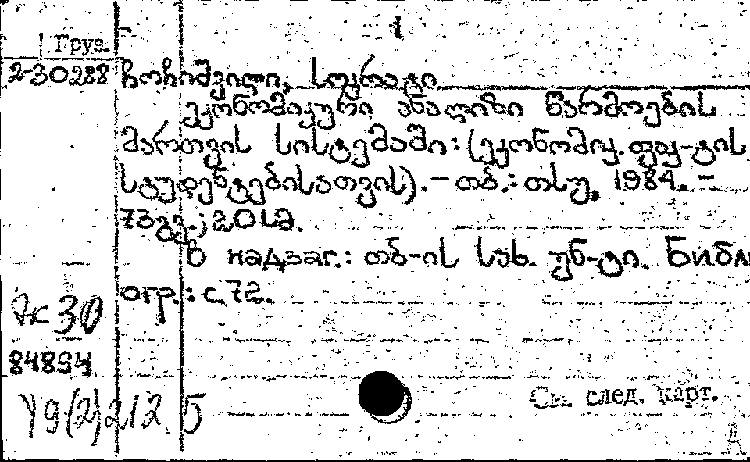 1
Груз.
2-30288 ჩოჩიშვილი, სოკრატი
ეკონომიკური ანალიზი წარმოების
მართვის სისტემაში: (ეკონომიკ. ფაკ-ტის
სტუდენტებისათვის). – თბ.: თსუ, 1984. –
73გვ.; 20სმ.
В надзаг.: თბ-ის სახ. უნ-ტი. Библ
огр.: с.72.
Эк 30
84894
У9(2)212.5
См. след. карт.